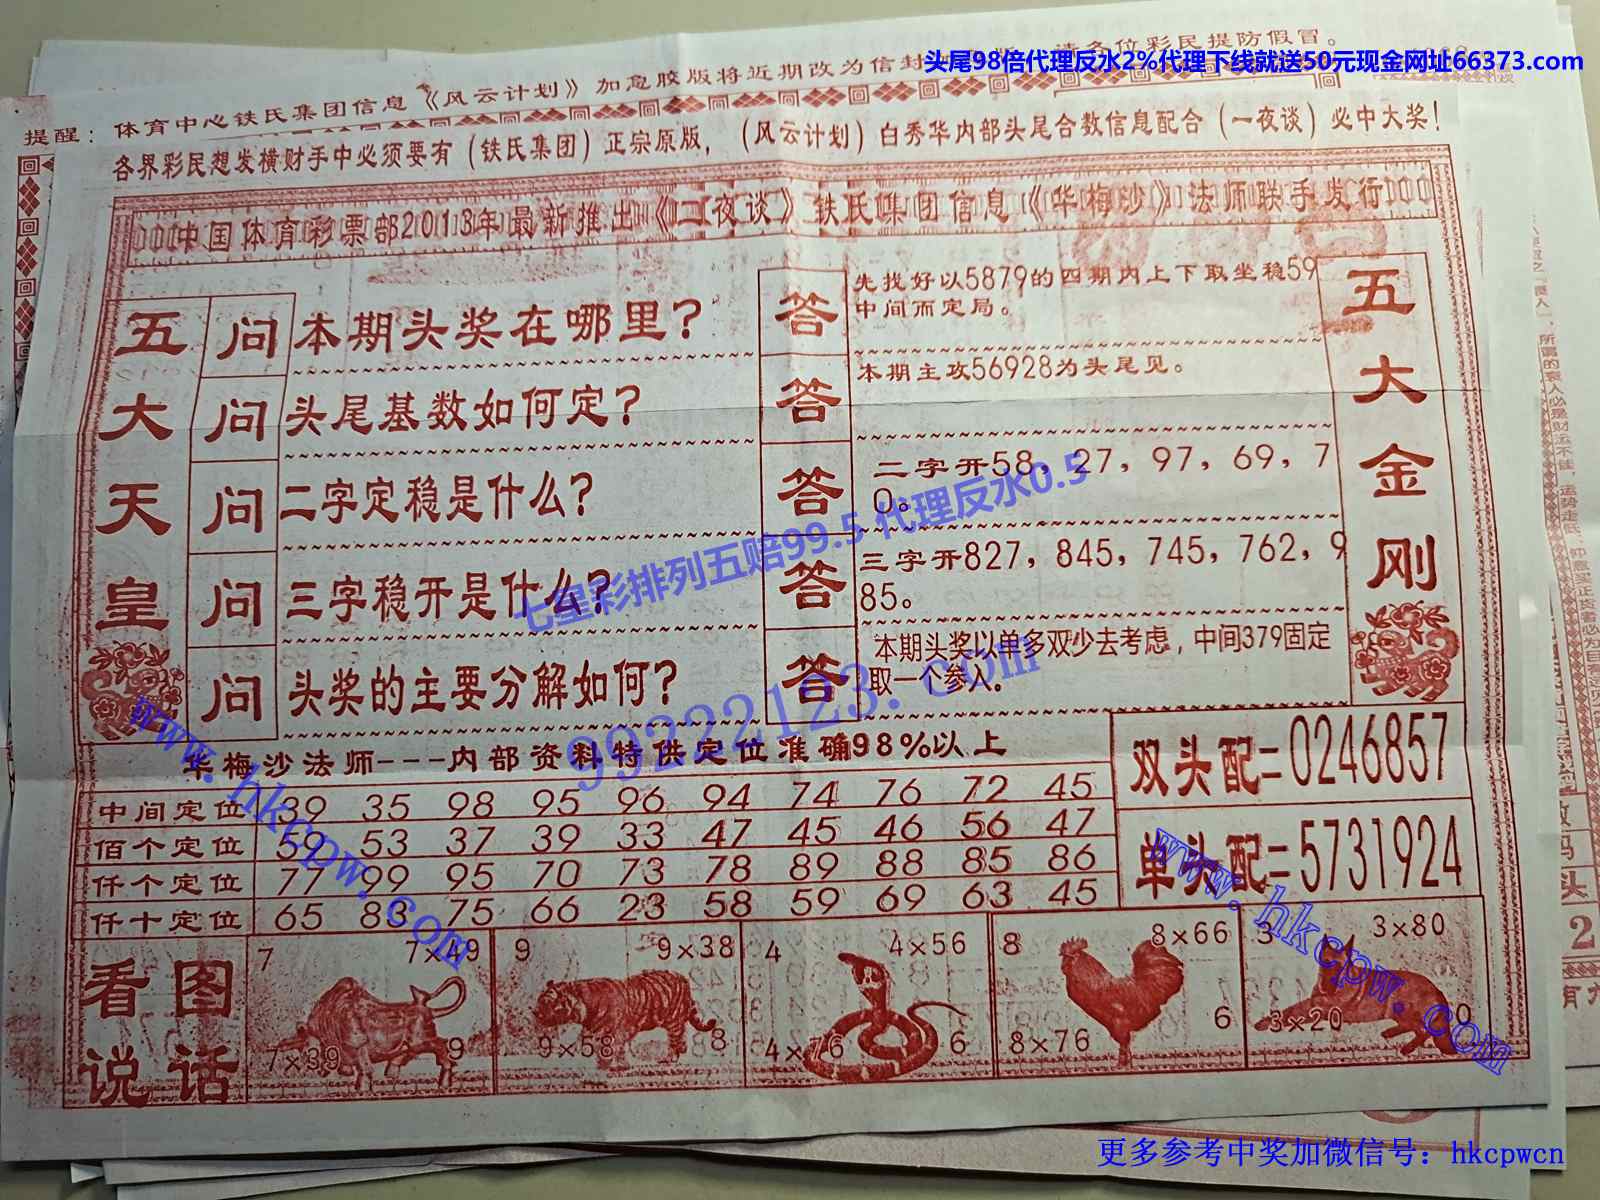 头尾98倍代理反水2%代理下线就送50元现金网址66373.com
提醒：体育中心铁氏集团信息《风云计划》加急胶版将近期改为信封 请各位彩民提防假冒。
各界彩民想发横财手中必须要有（铁氏集团）正宗原版，（风云计划）白秀华内部头尾合数信息配合（一夜谈）必中大奖！
中国体育彩票部2013年最新推出《二夜谈》铁氏集团信息《华梅沙》法师联手发行
五大天皇
问 本期头奖在哪里？
答 先找好以5879的四期内上下取坐稳59中间而定局。
问 头尾基数如何定？
答 本期主攻56928为头尾见。
问 二字定稳是什么？
答 二字开58，27，97，69，70。
问 三字稳开是什么？
答 三字开827，845，745，762，985。
问 头奖的主要分解如何？
答 本期头奖以单多双少去考虑，中间379固定取一个参入。
五大金刚
七星彩排列五赔99.5 代理反水0.5
99222123.com
华梅沙法师---内部资料特供定位准确98%以上
中间定位 39 35 98 95 96 94 74 76 72 45
佰个定位 59 53 37 39 33 47 45 46 56 47
仟个定位 77 99 95 70 73 78 89 88 85 86
仟十定位 65 83 75 66 23 58 59 69 63 45
双头配=0246857
单头配=5731924
www.hkcpw.com
www.hkcpw.com
看图说话
7 7×49
7×39 9
9 9×38
9×58 8
4 4×56
4×76 6
8 8×66
8×76 6
3 3×80
3×20 0
更多参考中奖加微信号：hkcpwcn